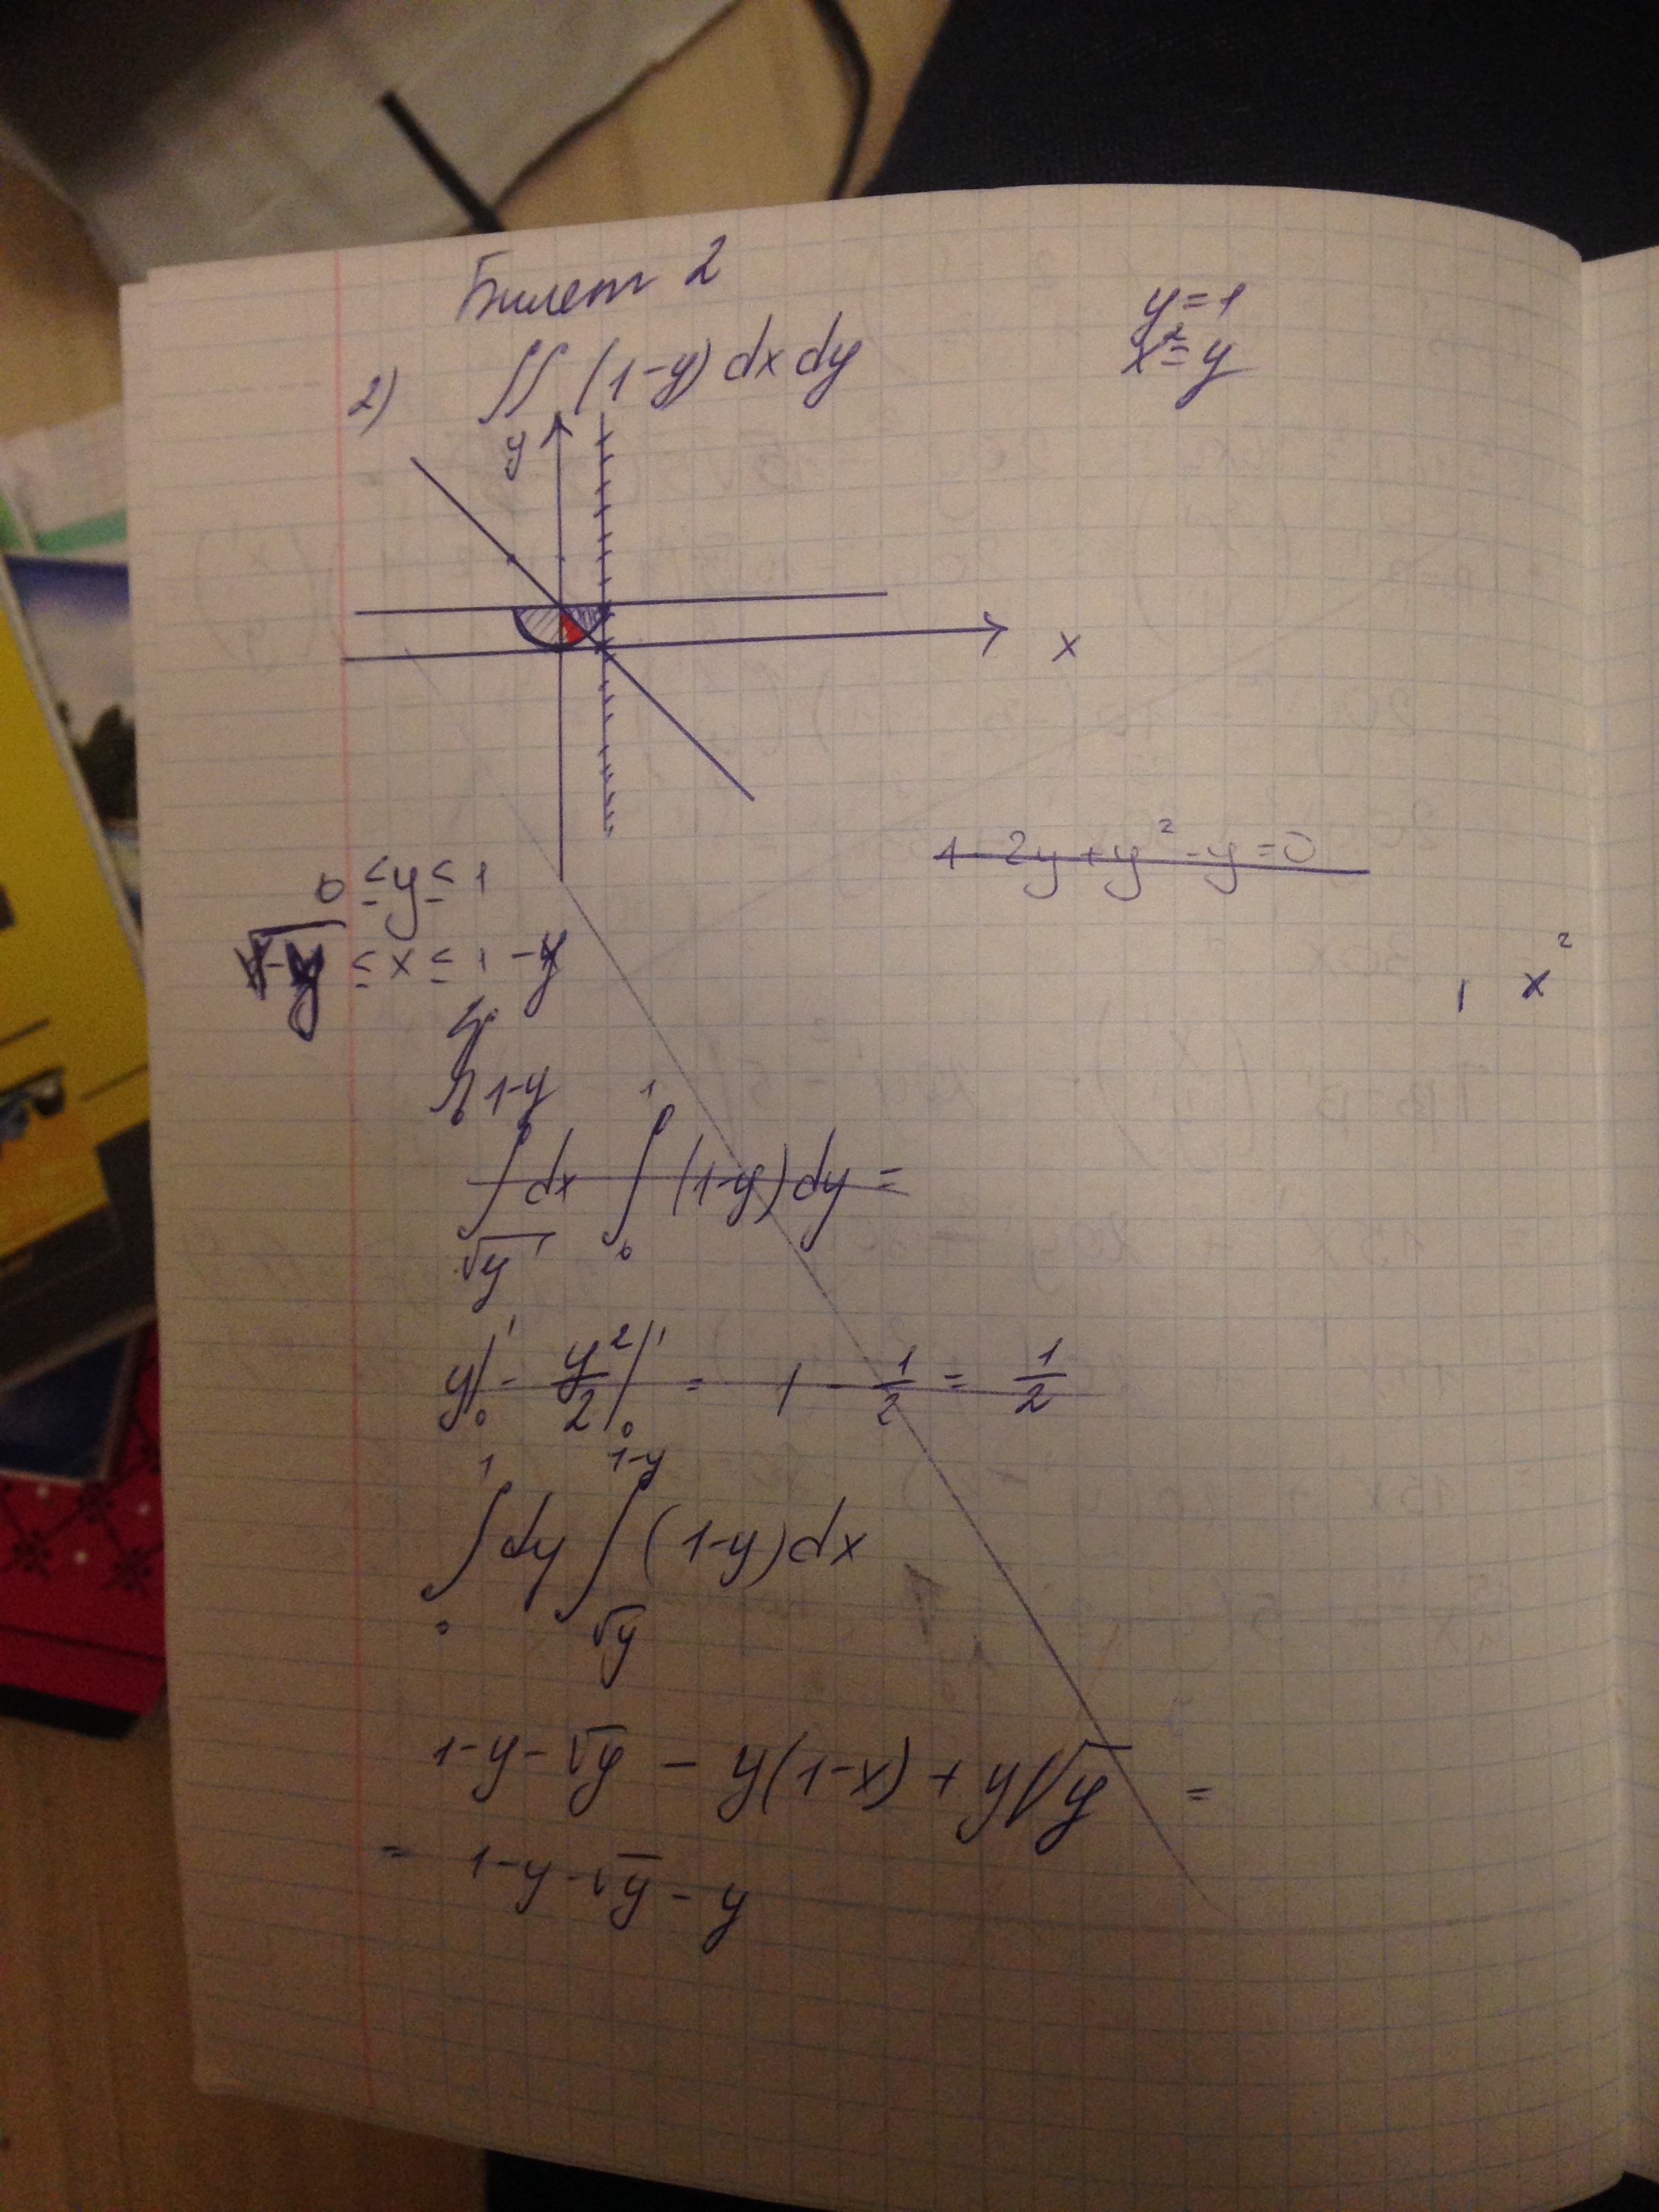 Билет 2
y=1
x²=y
2) ∬ (1-y) dx dy
y
x
1-2y+y²-y=0
0 ≤ y ≤ 1
√y ≤ x ≤ 1-y
1 x²
∫_{√y}^{1-y} dx ∫_0^1 (1-y) dy =
y|_0^1 - y²/2|_0^1 = 1 - 1/2 = 1/2
∫_0^1 dy ∫_{√y}^{1-y} (1-y) dx
1-y-√y - y(1-x) + y√y =
= 1-y-√y - y